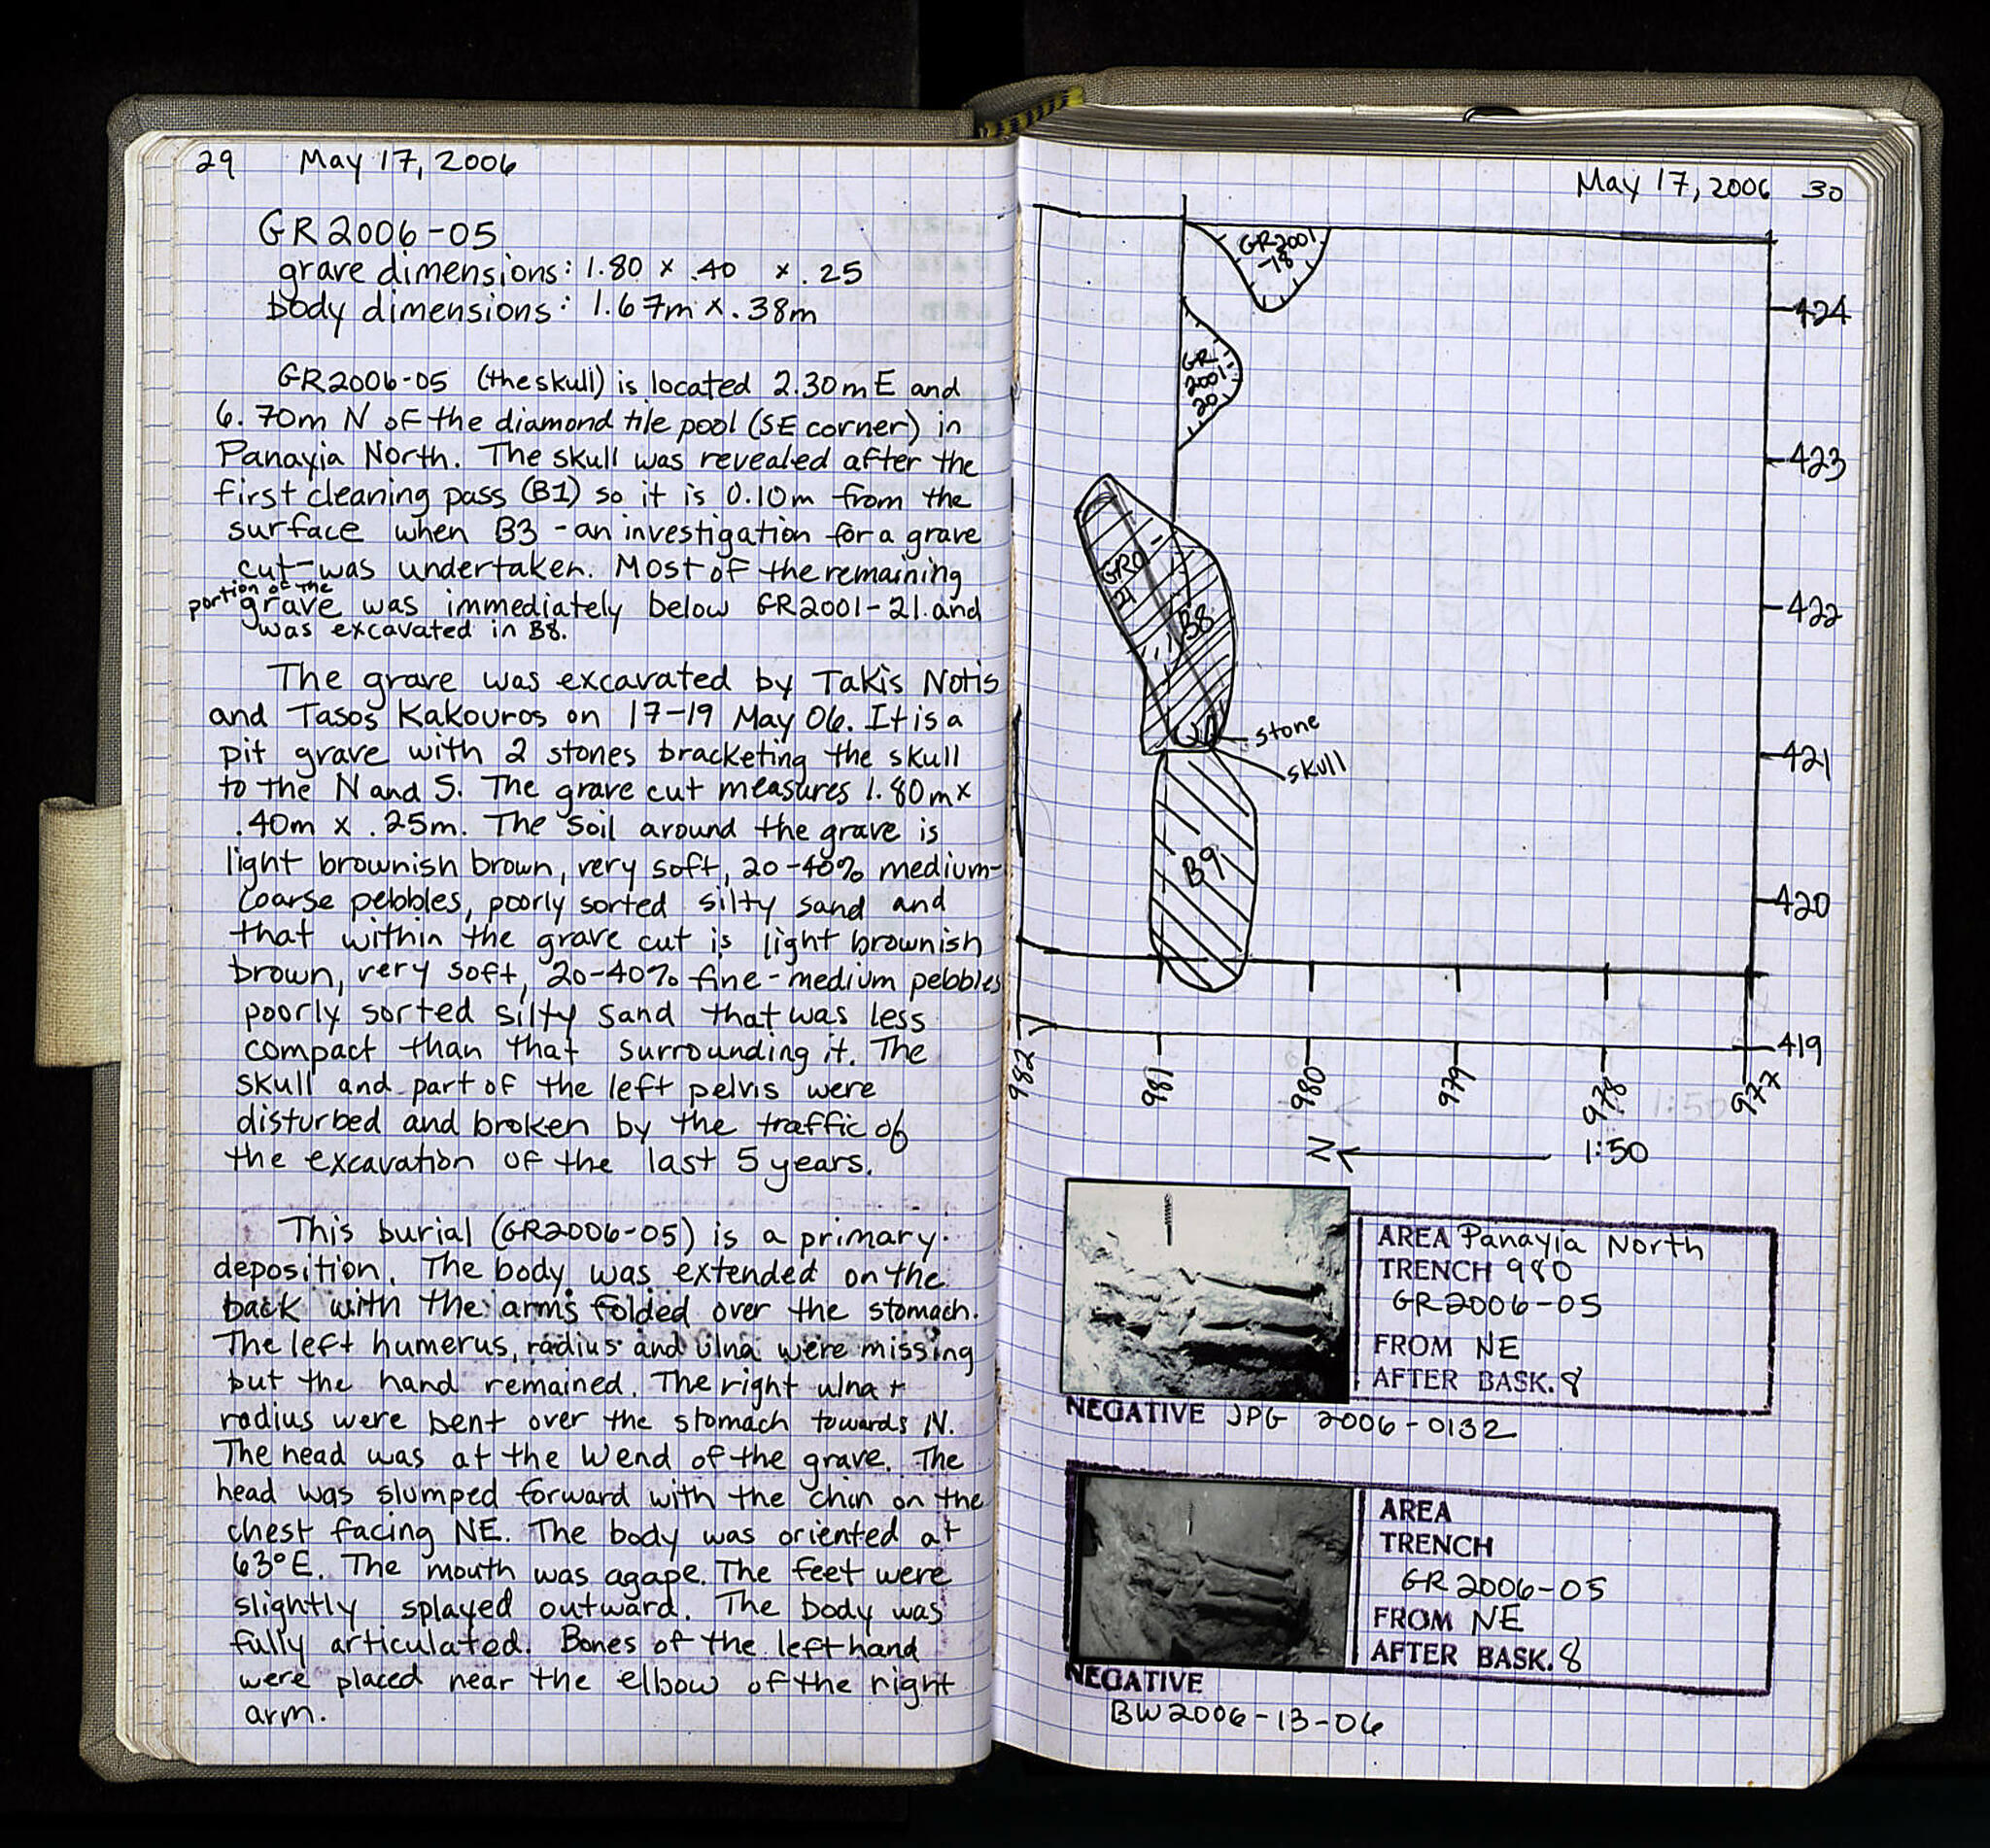 29 May 17, 2006
GR2006-05
grave dimensions: 1.80 x .40 x .25
body dimensions: 1.67m x .38m
GR2006-05 (the skull) is located 2.30m E and
6.70m N of the diamond tile pool (SE corner) in
Panayia North. The skull was revealed after the
first cleaning pass (B1) so it is 0.10m from the
surface when B3 - an investigation for a grave
cut - was undertaken. Most of the remaining
portion of the
grave was immediately below GR2001-21 and
was excavated in B8.
The grave was excavated by Takis Notis
and Tasos Kakouros on 17-19 May 06. It is a
pit grave with 2 stones bracketing the skull
to the N and S. The grave cut measures 1.80m x
.40m x .25m. The soil around the grave is
light brownish brown, very soft, 20-40% medium-
coarse pebbles, poorly sorted silty sand and
that within the grave cut is light brownish
brown, very soft, 20-40% fine-medium pebbles
poorly sorted silty sand that was less
compact than that surrounding it. The
skull and part of the left pelvis were
disturbed and broken by the traffic of
the excavation of the last 5 years.
This burial (GR2006-05) is a primary
deposition. The body was extended on the
back with the arms folded over the stomach.
The left humerus, radius and ulna were missing
but the hand remained. The right ulna +
radius were bent over the stomach towards N.
The head was at the W end of the grave. The
head was slumped forward with the chin on the
chest facing NE. The body was oriented at
63°E. The mouth was agape. The feet were
slightly splayed outward. The body was
fully articulated. Bones of the left hand
were placed near the elbow of the right
arm.
May 17, 2006 30
GR2001
-18
424
GR
2001-
20
423
GR0
21
B8
422
stone
skull
421
B9
420
419
982
981
980
979
978
977
N
1:50
AREA Panayia North
TRENCH 980
GR2006-05
FROM NE
AFTER BASK. 8
NEGATIVE JPG 2006-0132
AREA
TRENCH
GR2006-05
FROM NE
AFTER BASK. 8
NEGATIVE
BW2006-13-06